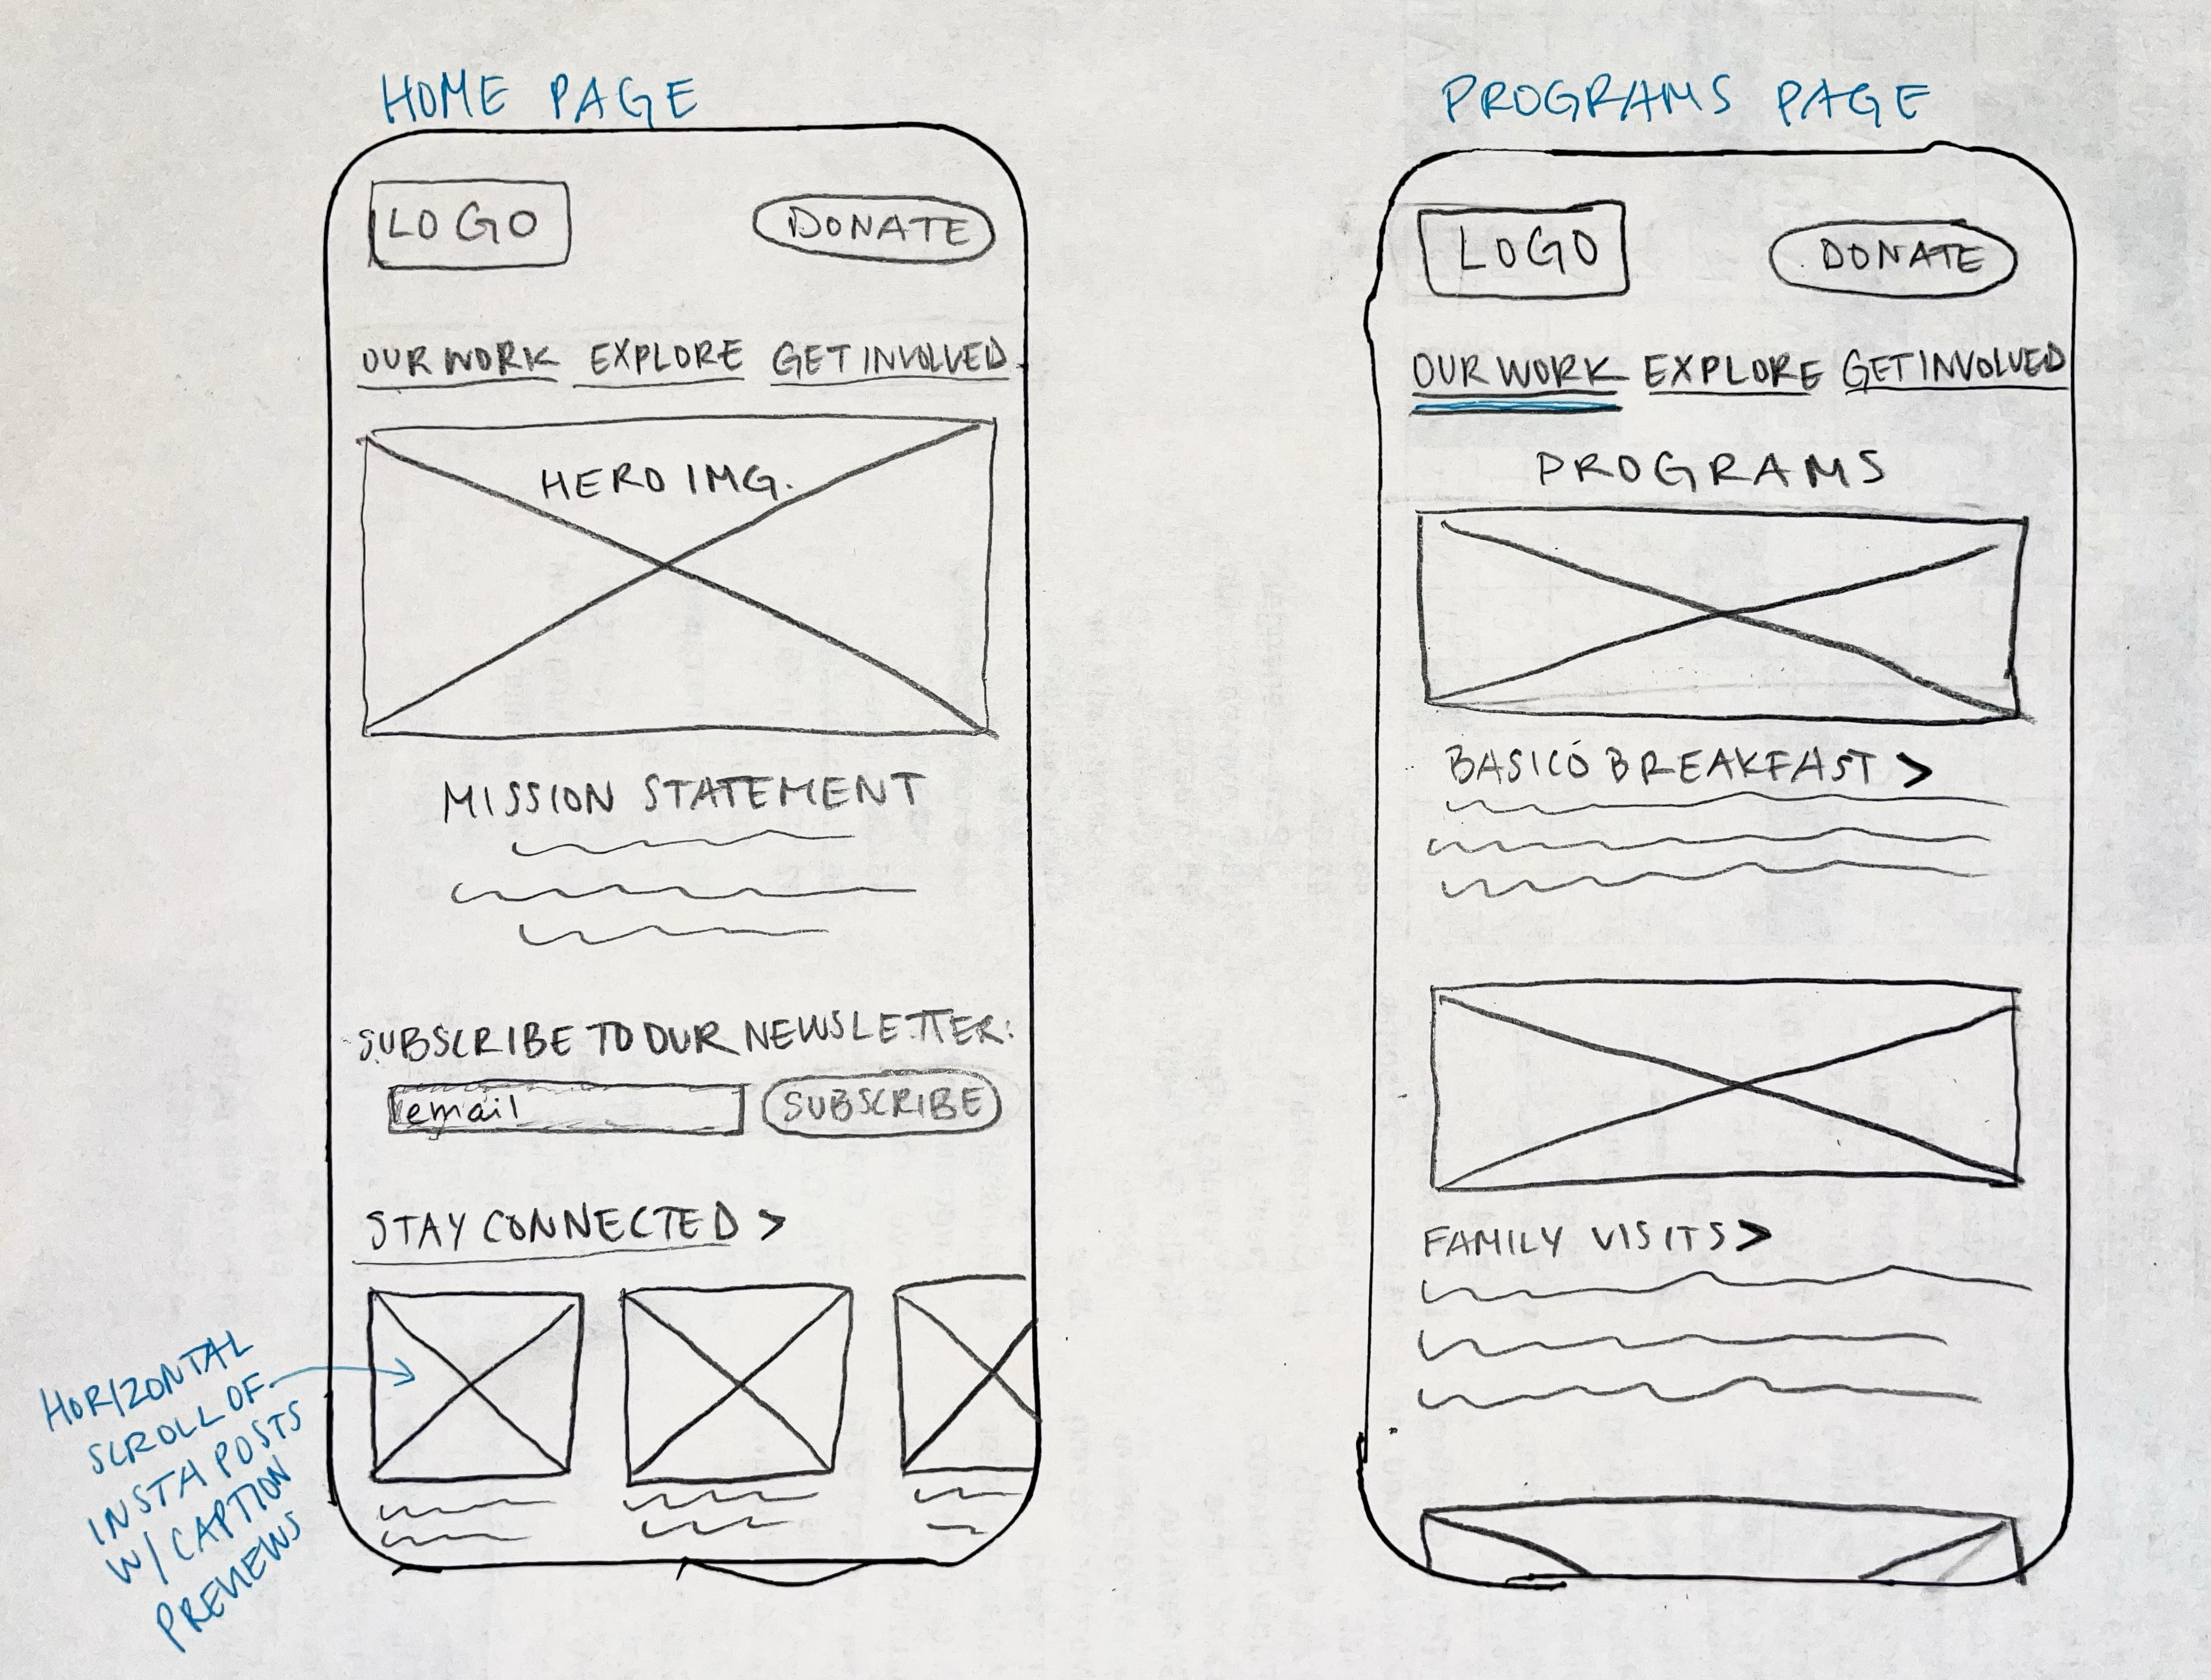 HOME PAGE
LOGO
DONATE
OUR WORK EXPLORE GET INVOLVED
HERO IMG.
MISSION STATEMENT
SUBSCRIBE TO OUR NEWSLETTER:
email
SUBSCRIBE
STAY CONNECTED >
HORIZONTAL
SCROLL OF
INSTA POSTS
W/ CAPTION
PREVIEWS
PROGRAMS PAGE
LOGO
DONATE
OUR WORK EXPLORE GET INVOLVED
PROGRAMS
BASICÓ BREAKFAST >
FAMILY VISITS >